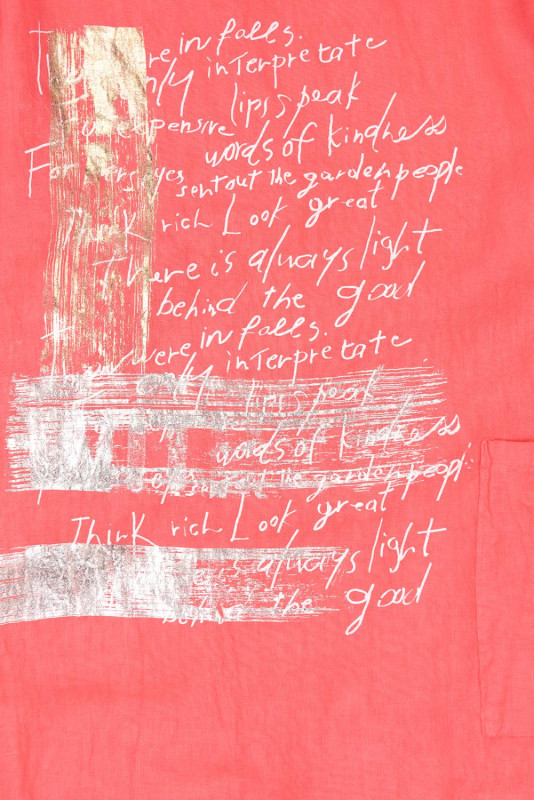 were in falls.
only interpretate
lips speak
unexpensive
words of kindness
For eyes
sent out the garden people
Think rich Look great
There is always light
behind the good
were in falls.
only interpretate
lips speak
words of kindness
out the garden people
Think rich Look great
is always light
behind the good